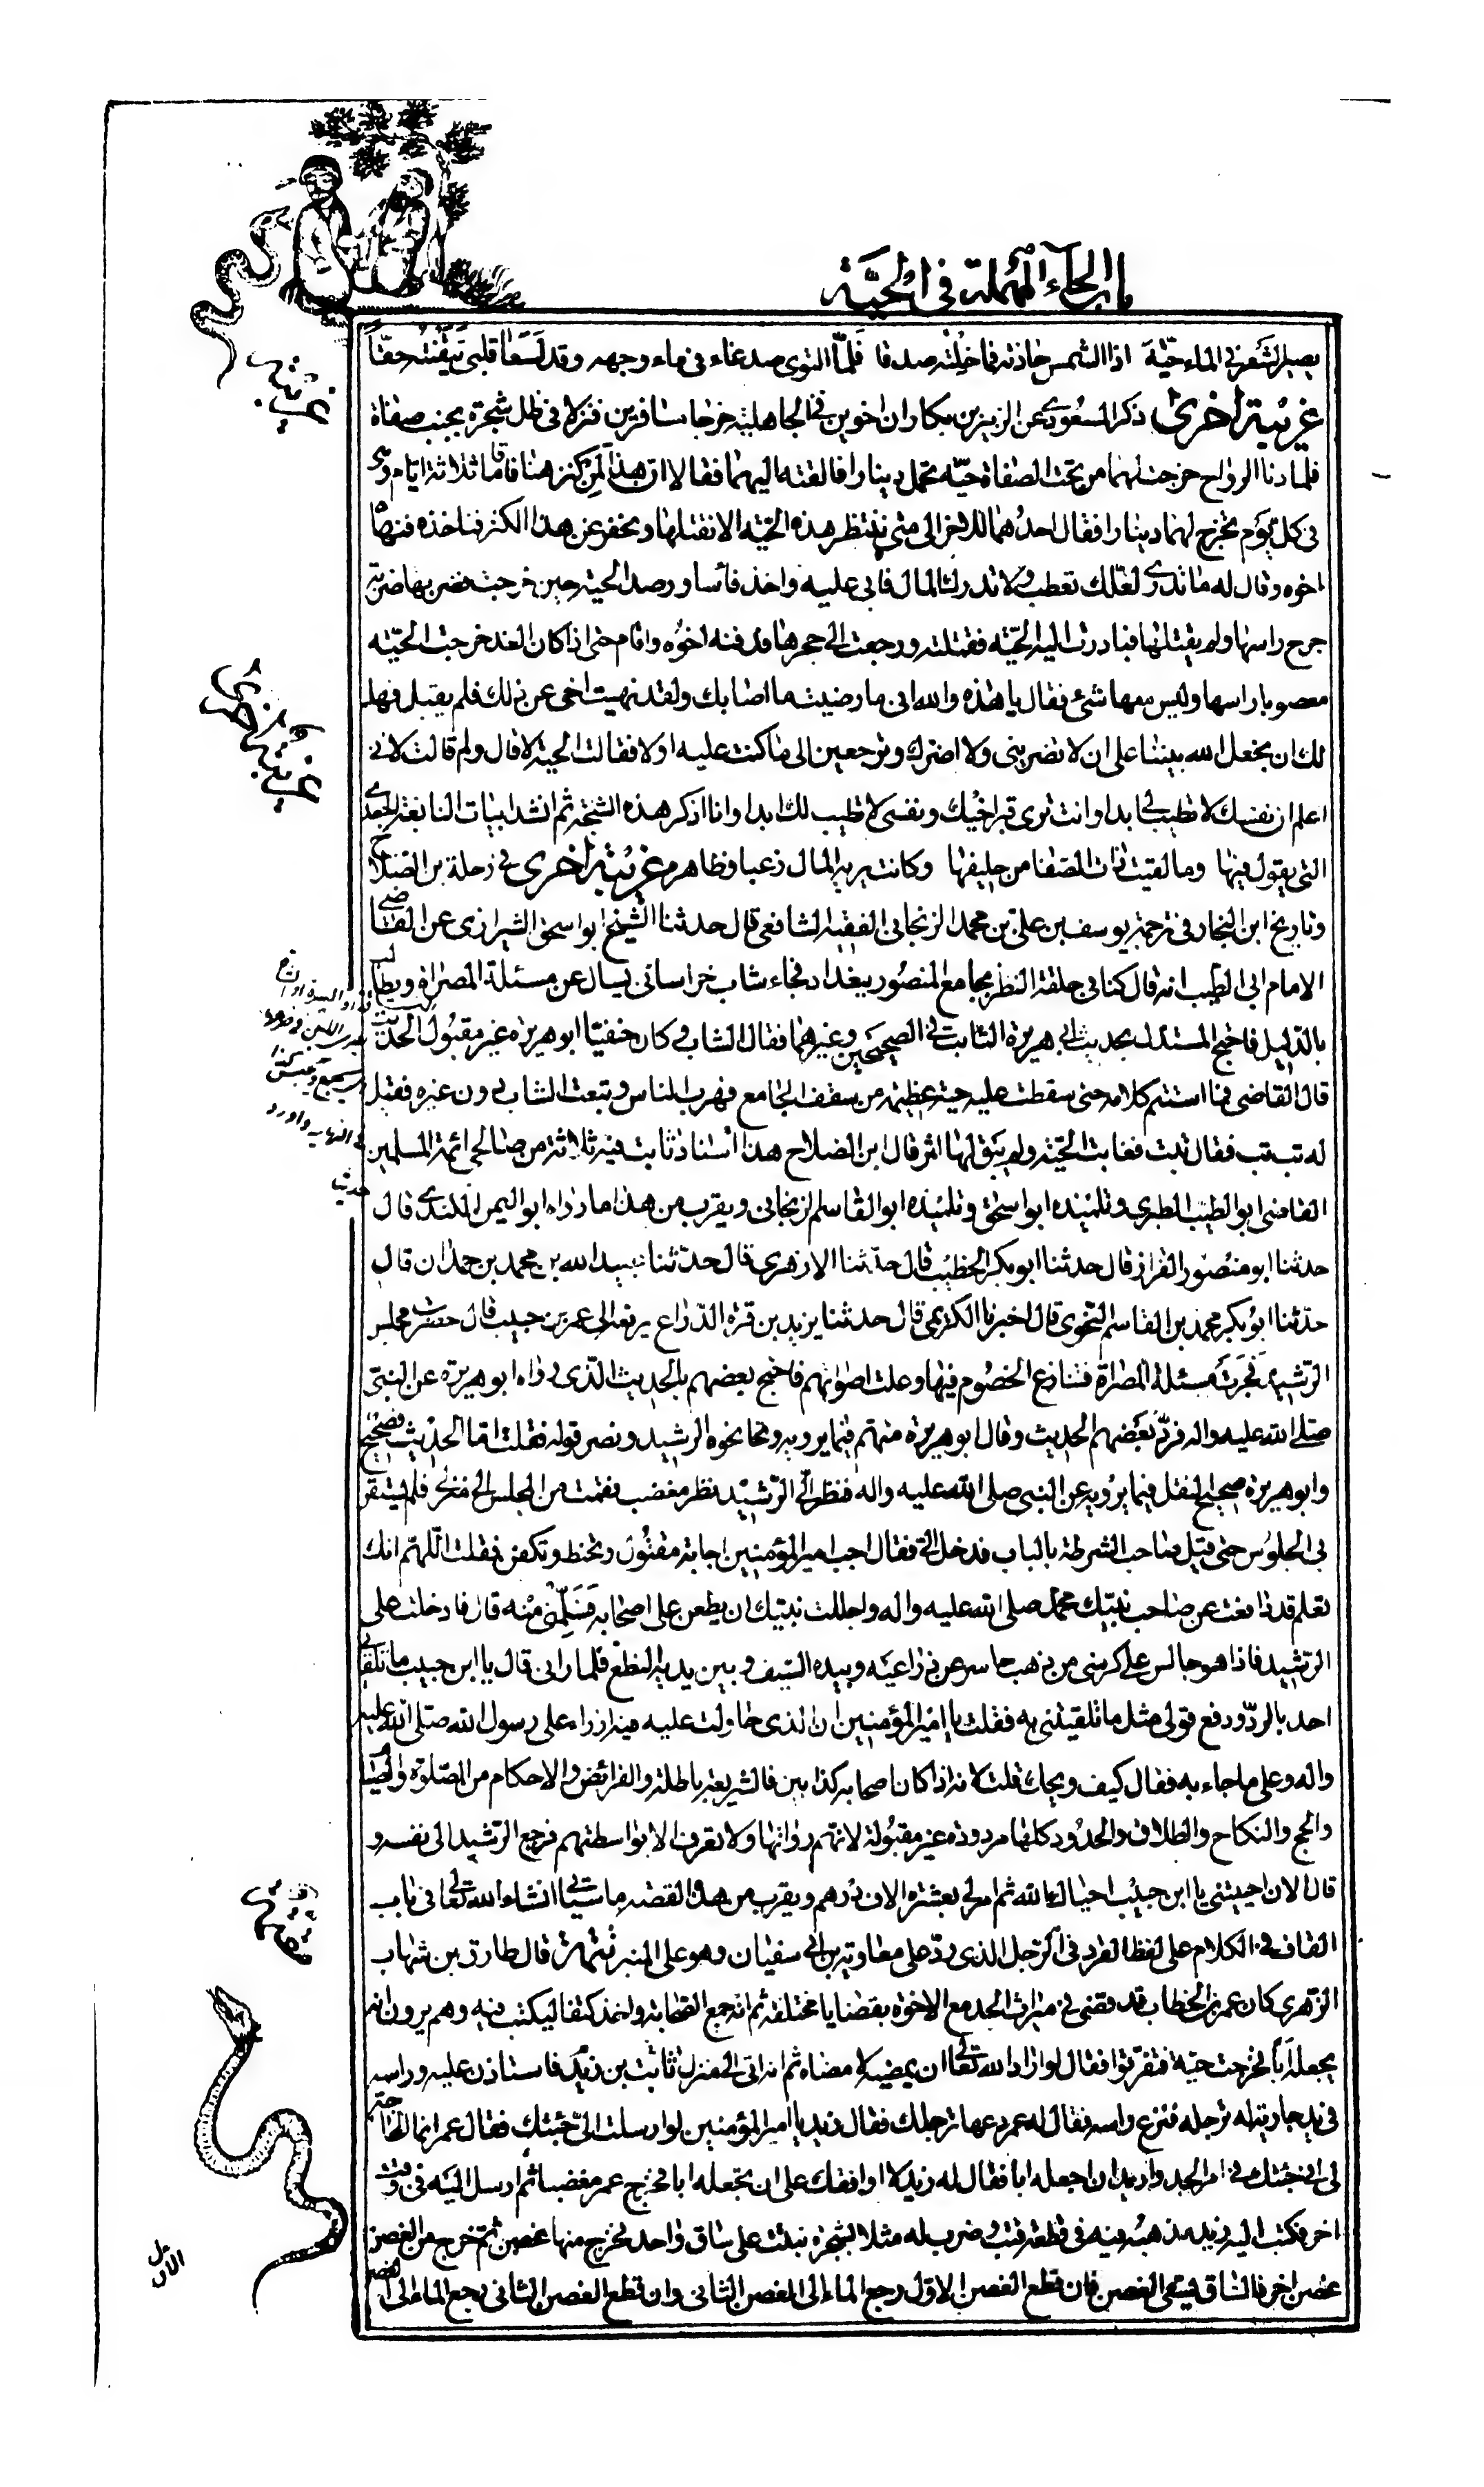 باب الحاء المهملة في الحيّة
يصير الشعر في الماء حيّة اذا الشمس حاذته فما خلته صدقا فلمّا التوى صدغاه في ماء وجهه وقد لسعا قلبي تيقّنته حقّاً
غريبة اخرى ذكر المسعودي عن الزبير بن بكار ان اخوين في الجاهلية خرجا مسافرين فنزلا في ظل شجرة بجنب صفاة
فلما دنا الرواح خرجت لهما من تحت الصفاة حيّه تحمل دينارا فالقته اليهما فقالا ان هذا لمن كنز هنا فاقاما ثلاثة ايام وهي
في كل يوم تخرج لهما دينارا فقال احدهما للاخر الى متى ننتظر هذه الحيّه الا نقتلها ونحفر عن هذا الكنز فناخذه فنهاه
اخوه وقال له ما تدري لعلك تعطب ولا تدرك المال فابى عليه واخذ فأسا ورصد الحية حين خرجت فضربها ضربة
جرح راسها ولم يقتلها فبادرت اليه الحيّه فقتلته ورجعت الى جحرها فدفنه اخوه واقام حتى اذا كان الغد خرجت الحيّه
معصوبا راسها وليس معها شئ فقال يا هذه والله اني ما رضيت ما اصابك ولقد نهيت اخي عن ذلك فلم يقبل فهل
لك ان نجعل الله بيننا على ان لا تضريني ولا اضرك وترجعين الى ما كنت عليه اولا فقالت الحية لا قال ولم قالت لاني
اعلم ان نفسك لا تطيب لي ابدا وانت ترى قبر اخيك ونفسي لا تطيب لك ابدا وانا اذكر هذه الشجة ثم انشد ابيات النابغة الجعدي
التي يقول فيها وما لقيت ذات الصفا من حليفها وكانت يريه المال رغبا وظاهره غريبة اخرى في رحلة بن الصلاح
وتاريخ ابن النجار في ترجمة يوسف بن علي بن محمد الزنجاني الفقيه الشافعي قال حدثنا الشيخ ابو اسحق الشيرازي عن القاضي
الامام ابي الطيب انه قال كنا في حلقة النظر بجامع المنصور ببغداد فجاء شاب خراساني يسال عن مسئلة المصراة ويطالب
بالدليل فاحتج المستدل بحديث ابي هريرة الثابت في الصحيحين وغيرهما فقال الشاب وكان حنفيّا ابو هريرة غير مقبول الحديث
قال القاضي فما استتم كلامه حتى سقطت عليه حية عظيمة من سقف الجامع فهرب الناس وتبعت الشاب دون غيره فقيل
له تب تب فقال تبت فغابت الحيّة ولم يبق لها اثر قال ابن الصلاح هذا اسناد ثابت فيه ثلاثة من صالحي ائمة المسلمين
القاضي ابو الطيب الطبري وتلميذه ابو اسحق وتلميذه ابو القاسم الزنجاني ويقرب من هذا ما رواه ابو اليمن الكندي قال
حدثنا ابو منصور القزاز قال حدثنا ابو بكر الخطيب قال حدثنا الازهري قال حدثنا عبيد الله بن محمد بن حمدان قال
حدثنا ابو بكر محمد بن القاسم النحوي قال اخبرنا الكريمي قال حدثنا يزيد بن قرة الذراع يرفعه الى عمر بن حبيب قال حضرت مجلس
الرشيد فجرت مسئلة المصراة فتنازع الخصوم فيها وعلت اصواتهم فاحتج بعضهم بالحديث الذي رواه ابو هريرة عن النبي
صلى الله عليه واله فردّ بعضهم الحديث وقال ابو هريرة متهم فيما يرويه ونحا نحوه الرشيد ونصر قوله فقلت اما الحديث فصحيح
وابو هريرة صحيح النقل فيما يرويه عن النبي صلى الله عليه واله فنظر اليّ الرّشيد نظر مغضب فقمت من المجلس الى منزلي فلم يستقر
بي الجلوس حتى قيل صاحب الشرطة بالباب فدخل اليّ فقال اجب امير المؤمنين اجابة مقتول وتحنط وتكفن فقلت اللّهم انك
تعلم قد دافعت عن صاحب نبيّك محمد صلى الله عليه واله واجللت نبيك ان يطعن على اصحابه فسلّمني منه قال فادخلت على
الرشيد فاذا هو جالس على كرسي من ذهب حاسر عن ذراعيه وبيده السيف وبين يديه النطع فلما راني قال يا ابن حبيب ما تلقاني
احد بالردّ ودفع قولي مثل ما تلقيتني به فقلت يا امير المؤمنين ان الذي حاولت عليه فيه ازراء على رسول الله صلى الله عليه
واله وعلى ما جاء به فقال كيف ويحك قلت لانه اذا كان اصحابه كذابين فالشريعة باطلة والفرائض والاحكام من الصلوة والصيام
والحج والنكاح والطلاق والحدود كلها مردودة غير مقبولة لانهم رواتها ولا تعرف الا بواسطتهم فرجع الرشيد الى نفسه و
قال الان احييتني يا ابن حبيب احياك الله ثم امر لي بعشرة الاف درهم ويقرب من هذه القصة ما سياتي انشاء الله تعالى في باب
القاف في الكلام على لفظ القرد في الرجل الذي ردّ على معاوية بن ابي سفيان وهو على المنبر تتمة قال طارق بن شهاب
الزهري كان عمر بن الخطاب قد قضى في ميراث الجد مع الاخوة بقضايا مختلفة ثم انه جمع الصحابة واخذ كتفا ليكتب فيه وهم يرون انه
يجعله اباً فخرجت حيّة فتفرقوا فقال لو اراد الله تعالى ان يمضيه لامضاه ثم انه اتى الى منزل ثابت بن زيد فاستاذن عليه وراسه
في يد جارية له ترجله فنزع راسه فقال له عمر دعها ترجلك فقال زيد يا امير المؤمنين لو ارسلت اليّ جئتك فقال عمر انما الحاجة
لي اني جئتك في امر الجد واريد ان اجعله ابا فقال له زيد لا اوافقك على ان تجعله ابا فخرج عمر مغضبا ثم ارسل اليه في وقت
اخر فكتب اليه زيد مذهبه فيه في قطعة قتب وضرب له مثلا بشجرة نبتت على ساق واحد فخرج منها غصن ثم خرج من الغصن
غصن اخر فالساق يسقي الغصن فان قطع الغصن الاول رجع الماء الى الغصن الثاني وان قطع الغصن الثاني رجع الماء الى الغصن
غريبة
غريبة اخرى
في النهاية واورد
حديث
الاول